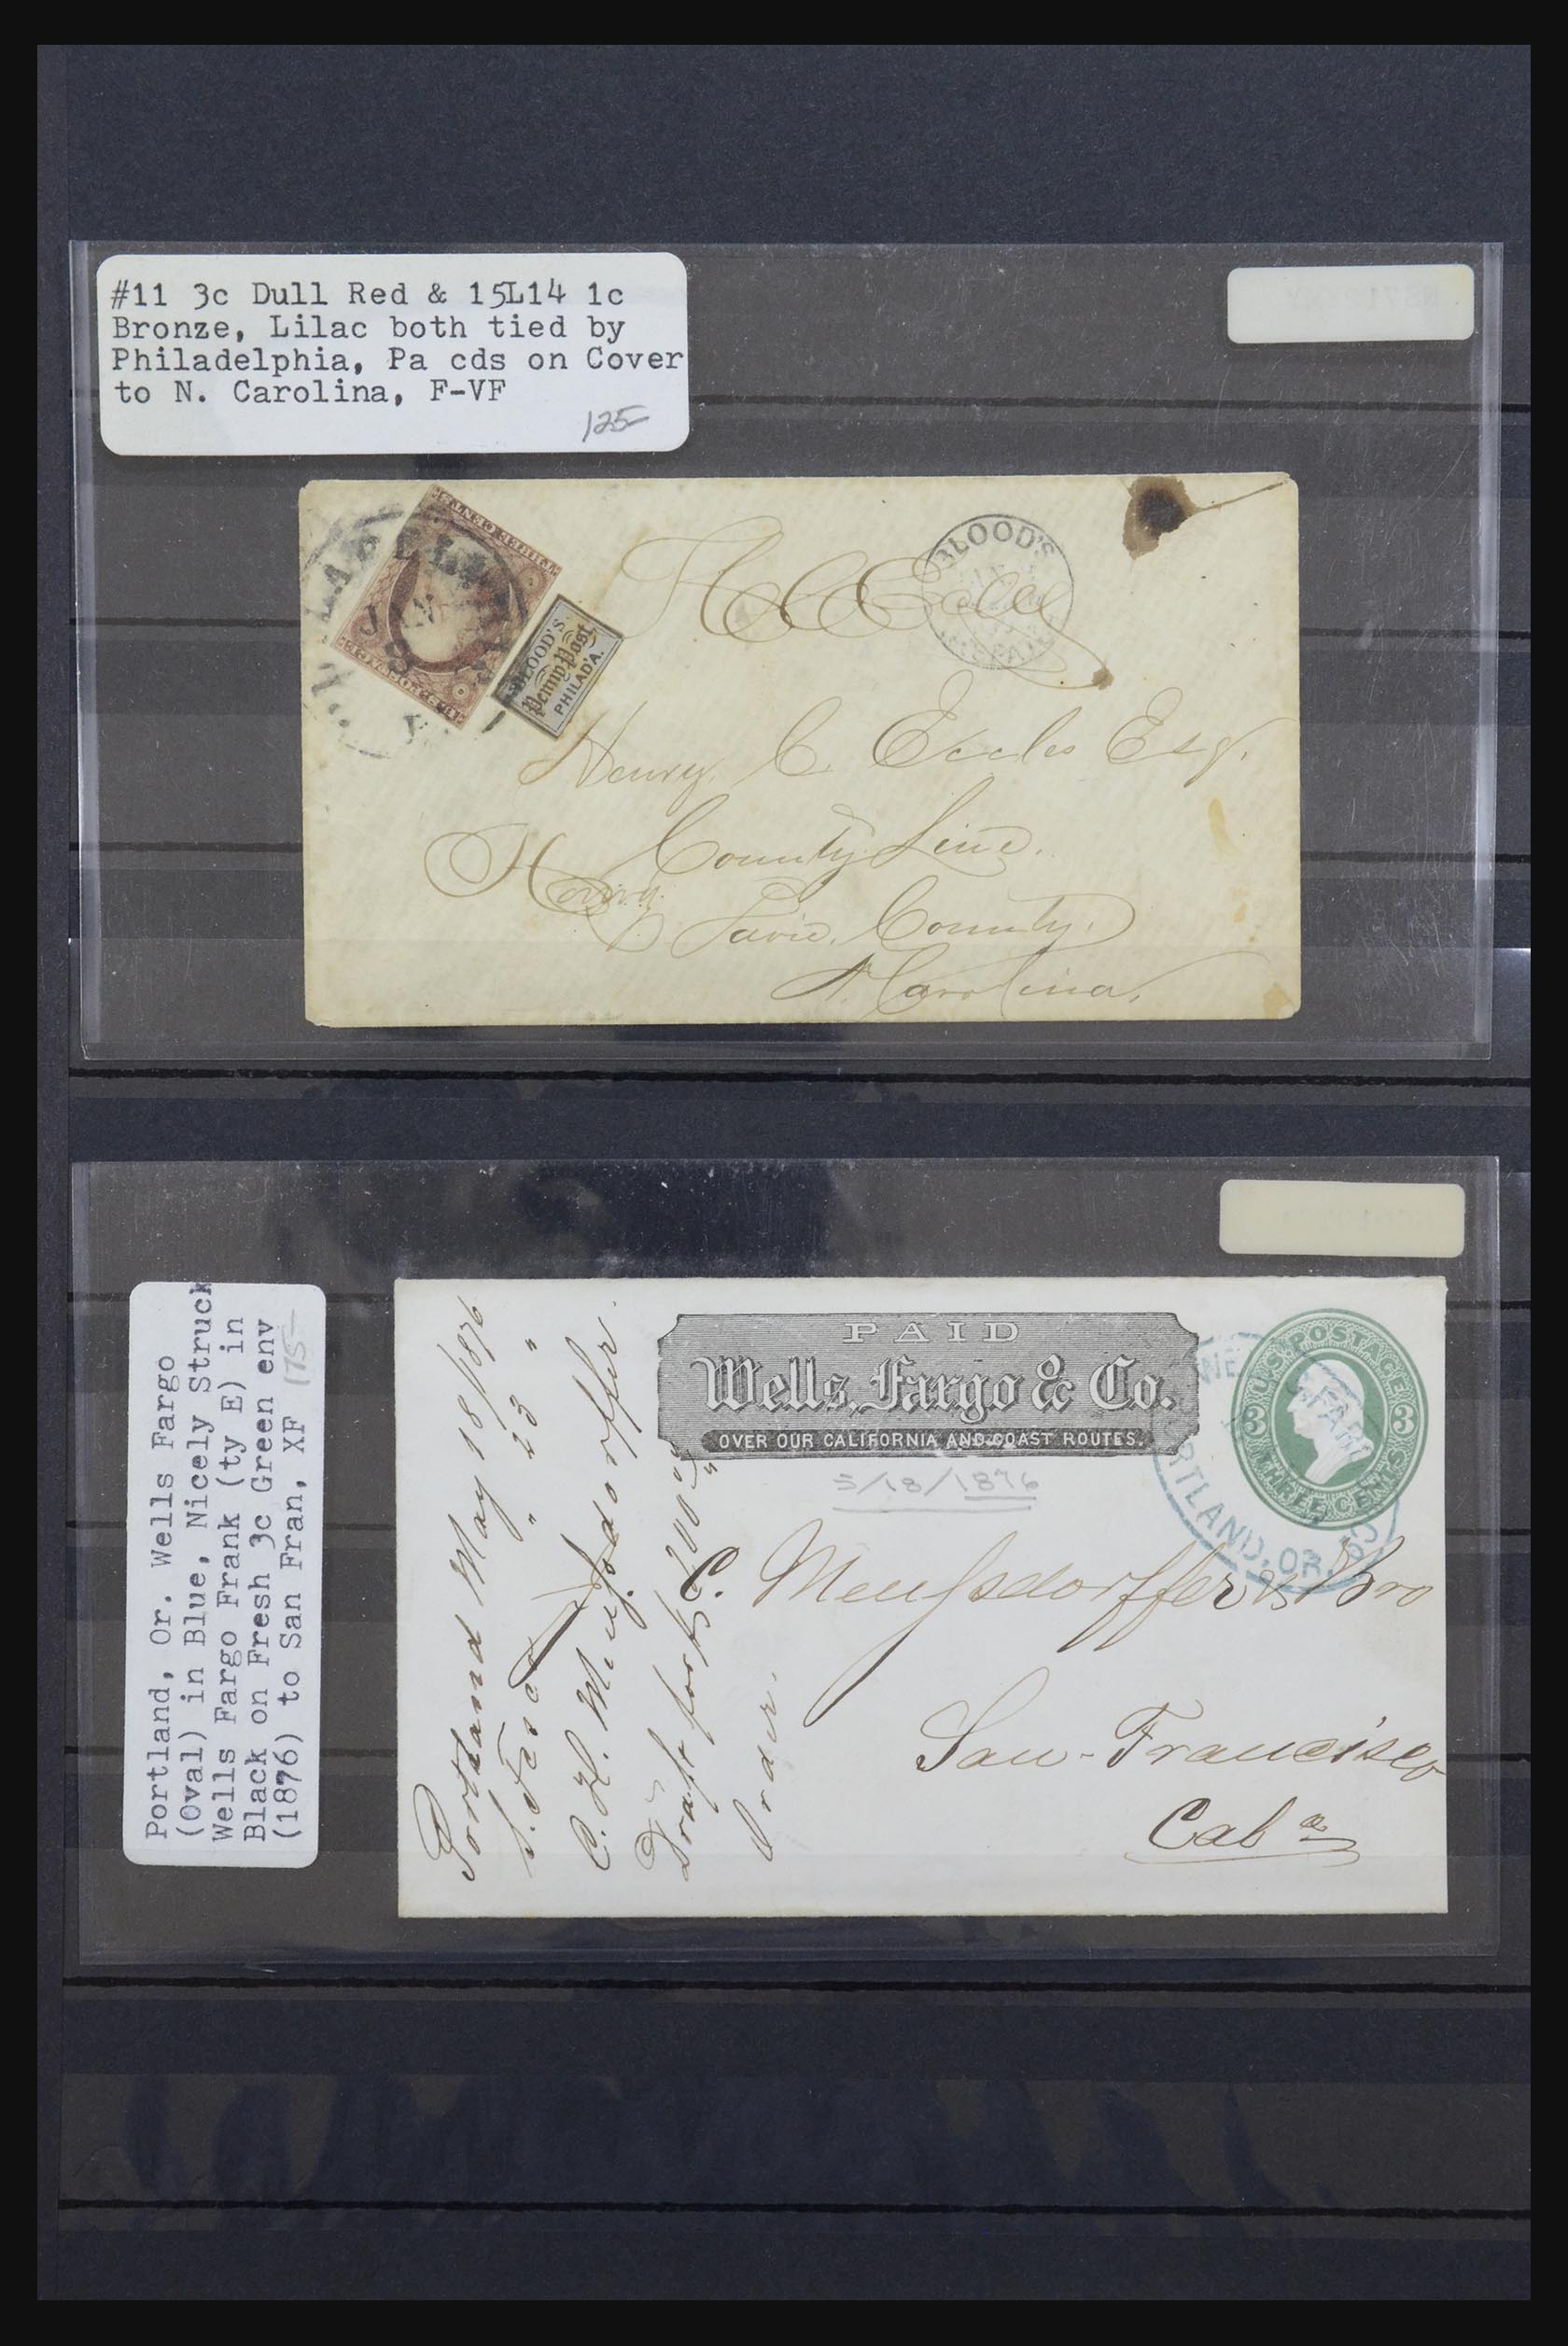 #11 3c Dull Red & 15L14 1c
Bronze, Lilac both tied by
Philadelphia, Pa cds on Cover
to N. Carolina, F-VF
125-
BLOOD'S
Penny Post
PHILAD'A.
BLOOD'S
Henry C. Eccles Esq.
County Line.
Davie County.
N. Carolina.
Portland, Or. Wells Fargo
(Oval) in Blue, Nicely Struck
Wells Fargo Frank (ty E) in
Black on Fresh 3c Green env
(1876) to San Fran, XF
175-
PAID
Wells, Fargo & Co.
OVER OUR CALIFORNIA AND COAST ROUTES.
5/18/1876
U.S. POSTAGE
3 3
THREE CENTS
FARGO
RTLAND, OR.
Portland May 18/1876
" 23 "
Draft for
Order.
C. Meussdorffer & Bro
San-Francisco
Cala